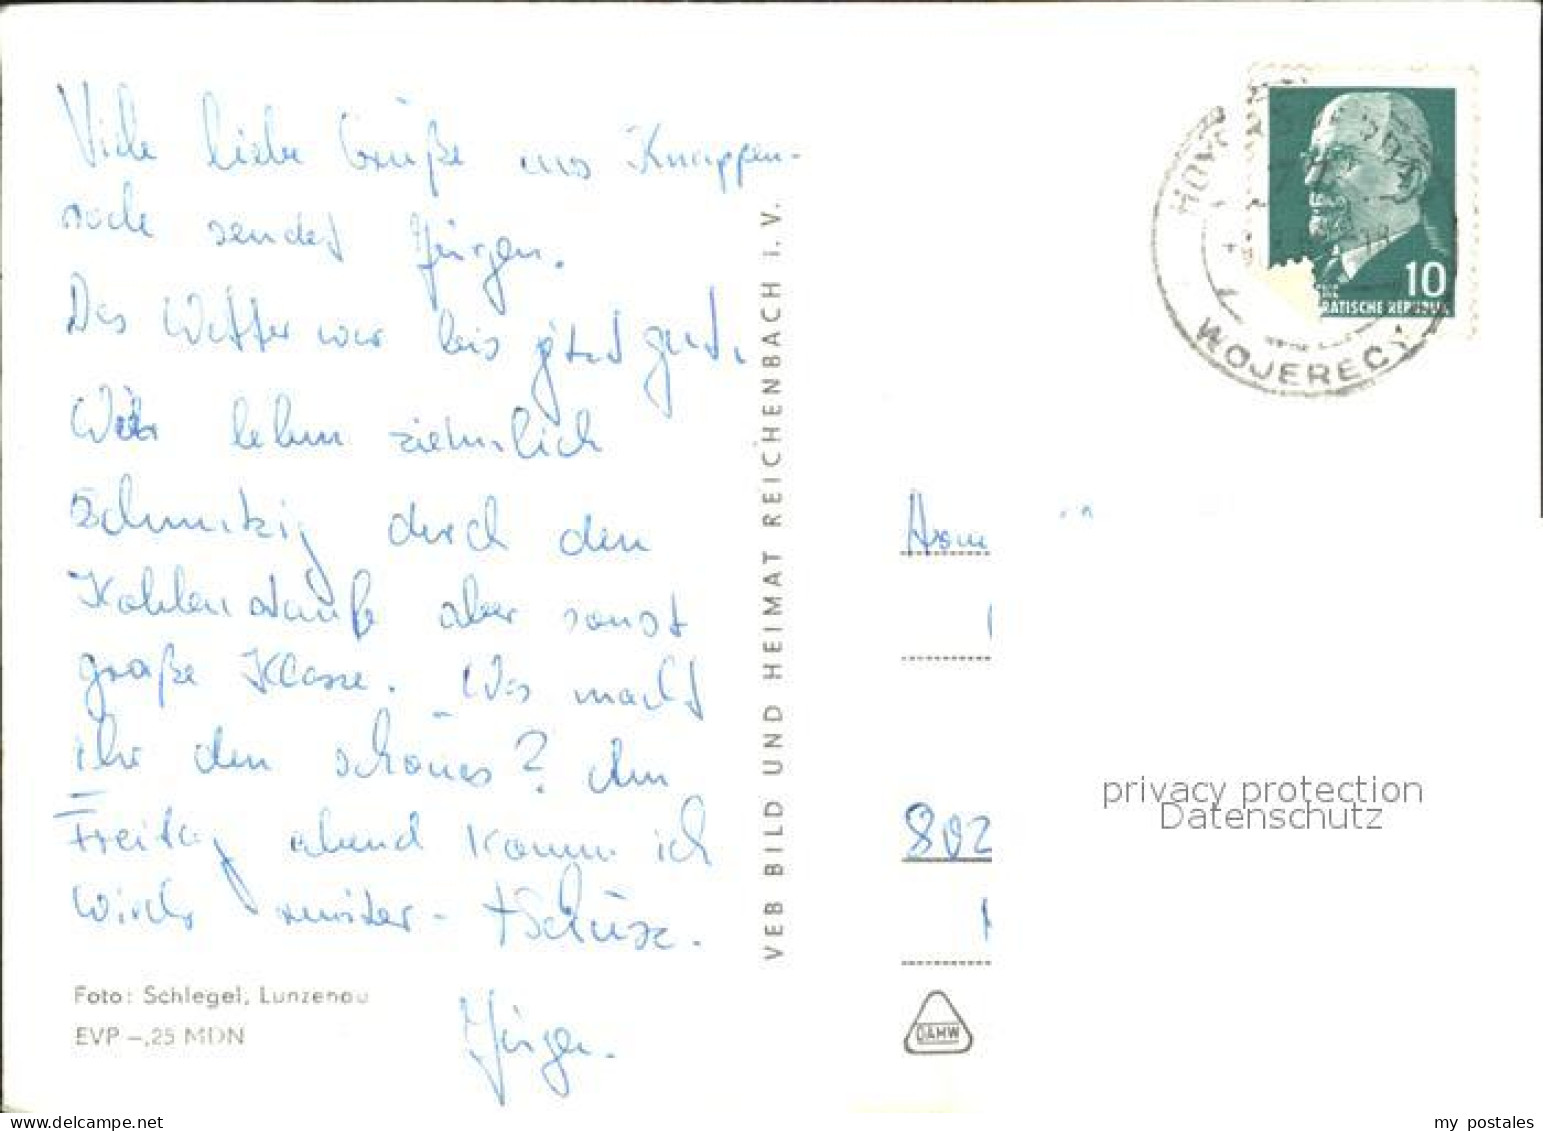 Viele liebe Grüße aus Knappen-
rode sendet Jürgen.
Das Wetter war bis jetzt gut.
Wir leben ziehmlich
schmutzig durch den
Kohlenstaub aber sonst
große Klasse. Was macht
ihr den schönes? Am
Freitag abend komm ich
wieder - tschüss.
Jürgen.
Foto: Schlegel, Lunzenau
EVP –,25 MDN
VEB BILD UND HEIMAT REICHENBACH I. V.
10
RATISCHE REPUBLIK
HOY
WOJERECY
802
privacy protection
Datenschutz
DAMW
www.delcampe.net
my_postales